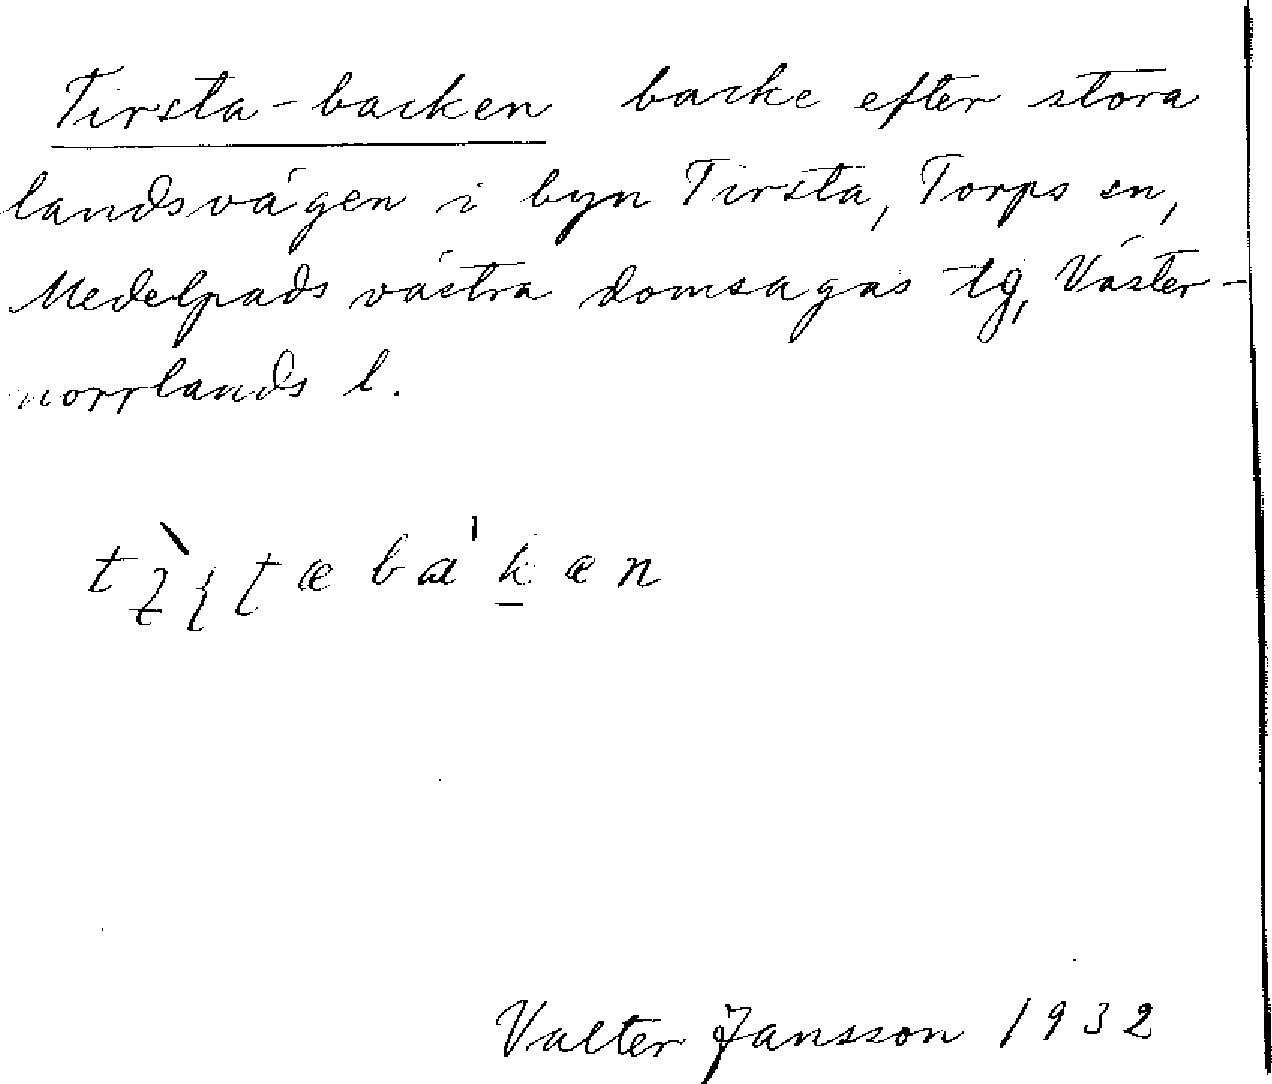 Tirsta-backen backe efter stora
landsvägen i byn Tirsta, Torps sn,
Medelpads västra domsagas tg, Väster-
norrlands l.
Valter Jansson 1932